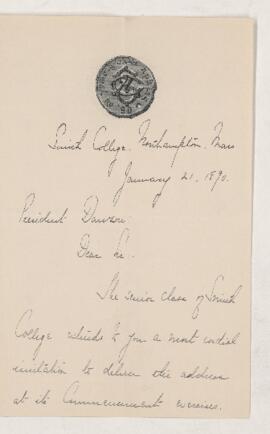 Smith College, Northampton, Mass
January 21, 1890.
President Dawson:
Dear Sir:
The senior class of Smith
College extends to you a most cordial
invitation to deliver the address
at its Commencement exercises.